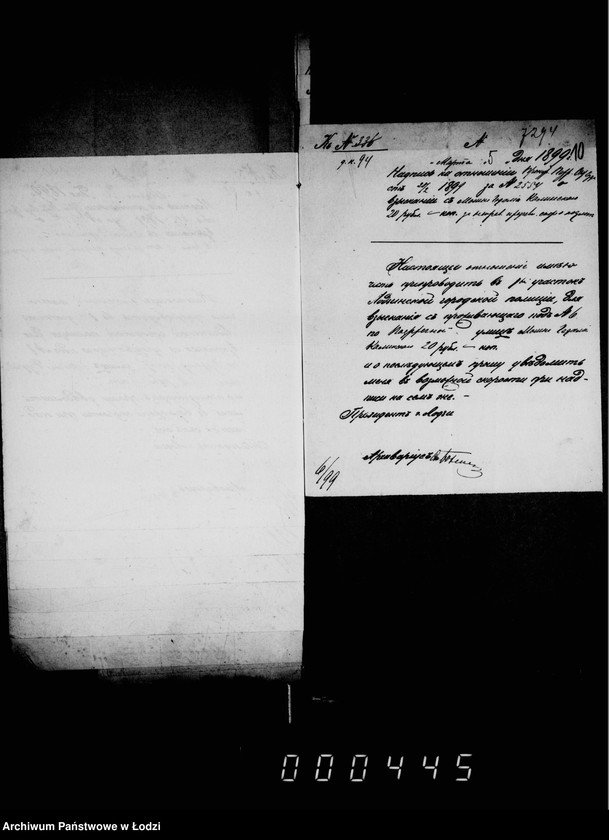 Къ № 336
д.к. 94
№ 7294
Марта 5 Дня 1899 10
Надпись на отношении
1899 за № 2554 о
взыскании съ
20 рубл. — коп. за
Настоящее отношение имѣю
честь препроводить въ участокъ
Лодзинской городской полиции, для
взыскания съ проживающаго подъ № 6
по улицѣ
20 рубл. — коп.
и о послѣдующемъ прошу увѣдомить
меня въ возможной скорости при над-
писи на семъ же. —
Президентъ г. Лодзи
Архиваріусъ
6/99
000445
Archiwum Państwowe w Łodzi